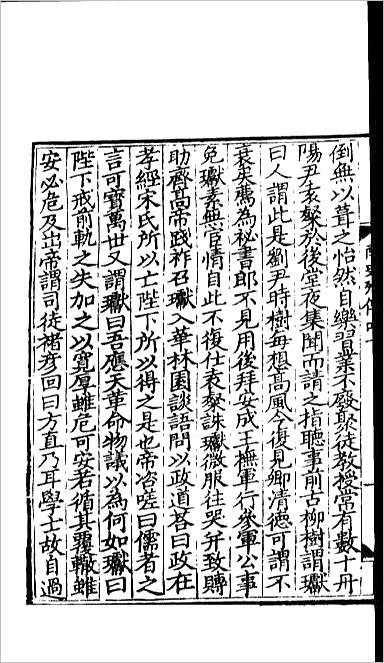 倒無以葺之怡然自樂習業不廢聚徒教授常有數十丹
陽尹袁粲於後堂夜集聞而請之指聽事前古柳樹謂瓛
曰人謂此是劉尹時樹每想高風今復見卿清德可謂不
衰矣薦為祕書郎不見用後拜安成王撫軍行參軍公事
免瓛素無宦情自此不復仕袁粲誅瓛微服往哭并致賻
助齊高帝踐祚召瓛入華林園談語問以政道荅曰政在
孝經宋氏所以亡陛下所以得之是也帝咨嗟曰儒者之
言可寳萬世又謂瓛曰吾應天革命物議以為何如瓛曰
陛下戒前軌之失加之以寬厚雖危可安若循其覆轍雖
安必危及出帝謂司徒褚彥回曰方直乃耳學士故自過